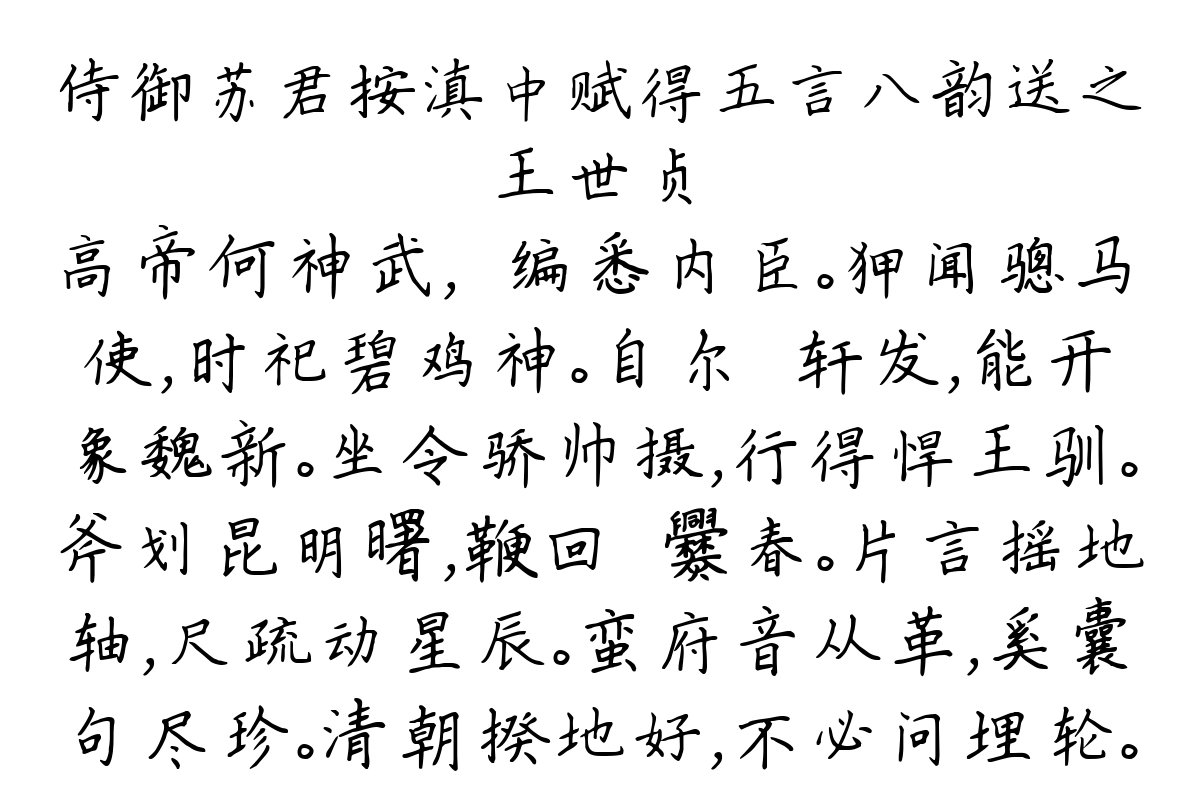 侍御苏君按滇中赋得五言八韵送之
王世贞
高帝何神武，编悉内臣。狎闻骢马
使，时祀碧鸡神。自尔 轩发，能开
象魏新。坐令骄帅摄，行得悍王驯。
斧划昆明曙，鞭回 爨春。片言摇地
轴，尺疏动星辰。蛮府音从革，奚囊
句尽珍。清朝揆地好，不必问埋轮。